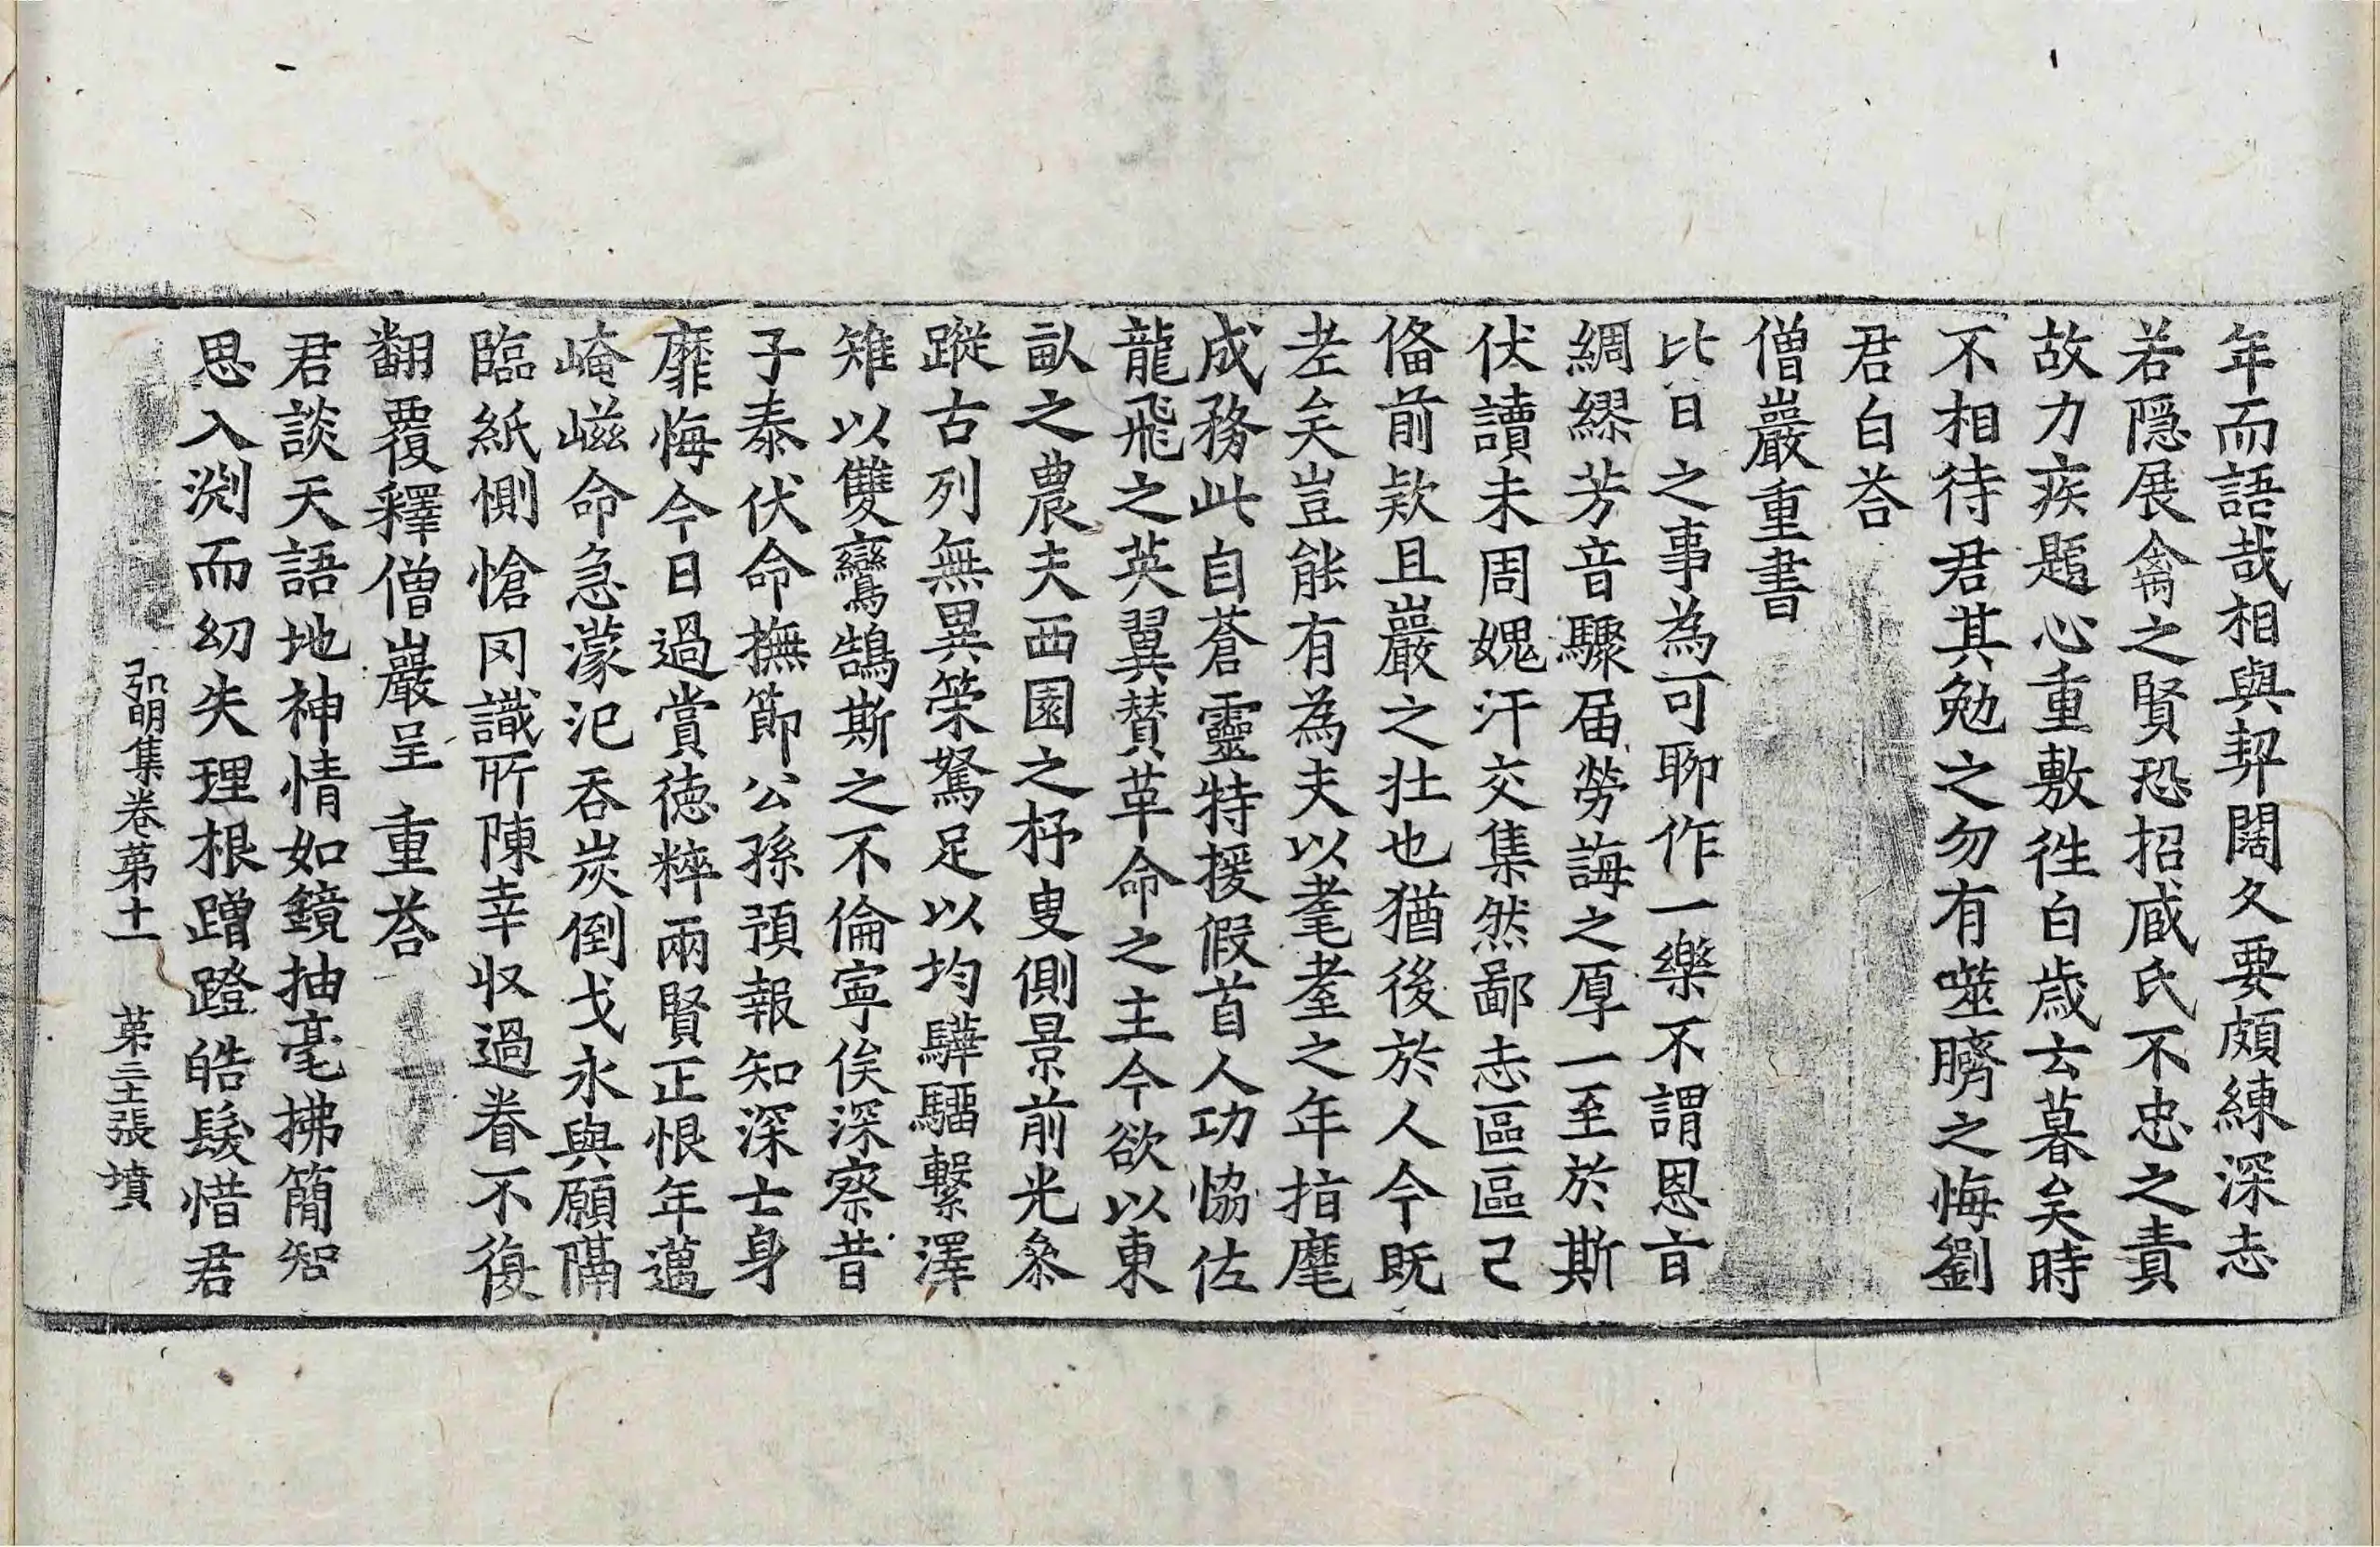 年而語哉相與契闊久要頗練深志
若隱展禽之賢恐招臧氏不忠之責
故力疾題心重敷徃白歲云暮矣時
不相待君其勉之勿有噬臍之悔劉
君白荅
僧巖重書
比日之事為可聊作一樂不謂恩㫖
綢繆芳音驟届勞誨之厚一至於斯
伏讀未周媿汗交集然鄙志區區已
俻前欵且巖之壯也猶後於人今旣
老矣豈能有為夫以耄耋之年指麾
成務此自蒼靈特援假首人功恊佐
龍飛之英翼賛革命之主今欲以東
畝之農夫西園之杼叟側景前光叅
蹤古列無異策駑足以均驊騮繫澤
雉以雙鸞鵠斯之不倫寜俟深察昔
子泰伏命撫節公孫預報知深士身
靡悔今日過賞德粹兩賢正恨年邁
崦嵫命急濛汜吞炭倒戈永與願隔
臨紙惻愴罔識所陳幸収過眷不復
翻覆釋僧巖呈　重荅
君談天語地神情如鏡抽毫拂簡智
思入渕而幼失理根蹭蹬皓髮惜君
弘明集卷第十一　第三十張　墳